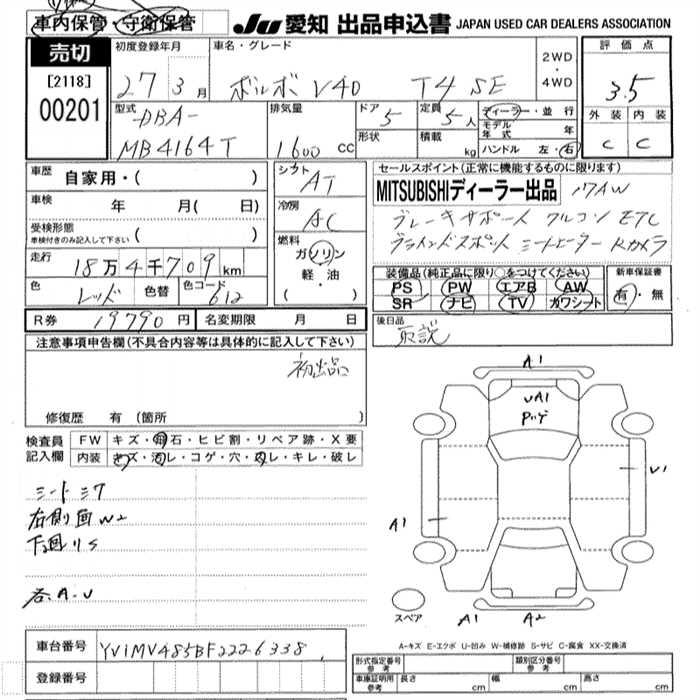 車内保管・守衛保管
JU 愛知 出品申込書 JAPAN USED CAR DEALERS ASSOCIATION
売切
[2118]
00201
初度登録年月
27 3月
車名・グレード
ボルボ V40 T4 SE
2WD
・
4WD
評価点
3.5
外装 内装
C C
型式
DBA-
MB4164T
排気量
1600 CC
ドア 5
形状
定員 5人
積載 kg
ディーラー・並行
モデル年式 年
ハンドル 左・右
車歴
自家用・( )
車検 年 月( 日)
受検形態
車検付きのみ記入して下さい ( )
走行
18万4千709km
色 レッド 色替 色コード 612
シフト
AT
冷房
AC
燃料
ガソリン
軽・油
( )
セールスポイント(正常に機能するものに限ります)
MITSUBISHIディーラー出品 17AW
ブレーキサポート フルコン ETC
ブラインドスポット シートヒーター Rカメラ
装備品(純正品に限り○をつけてください)
PS PW エアB AW
SR ナビ TV カワシート
新車保証書
有・無
R券 19790円 名変期限 月 日
後日品
取説
注意事項申告欄(不具合内容等は具体的に記入して下さい)
初出品
修復歴 有(箇所 )
検査員
記入欄
FW キズ・飛石・ヒビ割・リペア跡・X要
内装 キズ・汚レ・コゲ・穴・スレ・キレ・破レ
シートミワ
右側面W2
下廻りS
各A.U
A1
UA1
Pハゲ
U1
A1
スペア
A1
A2
A-キズ E-エクボ U-凹み W-補修跡 S-サビ C-腐食 XX-交換済
車台番号 YV1MV485BF2226338
登録番号
形式指定番号
参考
類別区分番号
参考
車庫証明用
参考
長さ cm 幅 cm 高さ cm